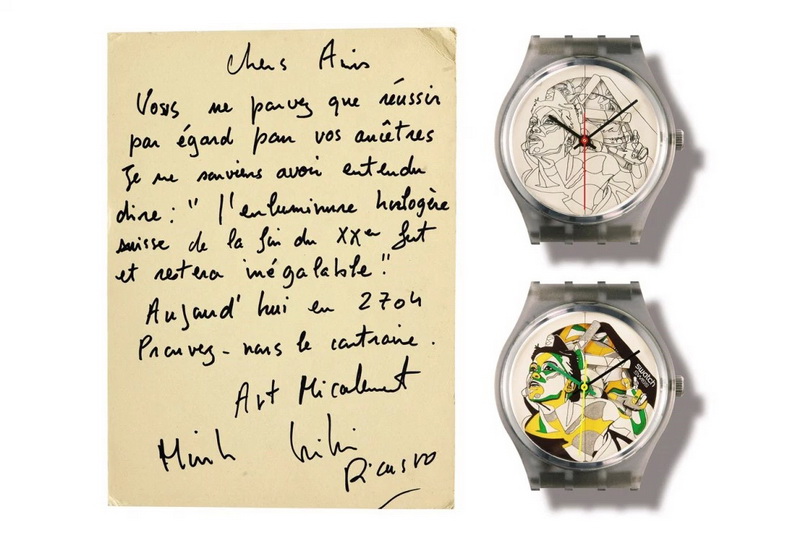 Chers Amis
Vous ne pouvez que réussir
par égard pour vos ancêtres
Je me souviens avoir entendu
dire : " l'enluminure horlogère
suisse de la fin du XXem fut
et restera inégalable "
Aujourd'hui en 2704
Prouvez-nous le contraire.
Art Micalement
Picasso
swatch
SWISS